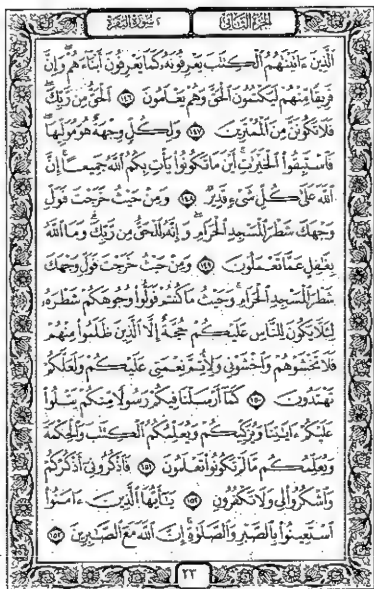 الجزء الثاني
٢ سورة البقرة
الَّذِينَ ءَاتَيْنَٰهُمُ الْكِتَٰبَ يَعْرِفُونَهُۥ كَمَا يَعْرِفُونَ أَبْنَآءَهُمْ وَإِنَّ
فَرِيقًا مِّنْهُمْ لَيَكْتُمُونَ الْحَقَّ وَهُمْ يَعْلَمُونَ ١٤٦ الْحَقُّ مِن رَّبِّكَ
فَلَا تَكُونَنَّ مِنَ الْمُمْتَرِينَ ١٤٧ وَلِكُلٍّ وِجْهَةٌ هُوَ مُوَلِّيهَا
فَاسْتَبِقُوا۟ الْخَيْرَٰتِ أَيْنَ مَا تَكُونُوا۟ يَأْتِ بِكُمُ اللَّهُ جَمِيعًا إِنَّ
اللَّهَ عَلَىٰ كُلِّ شَىْءٍ قَدِيرٌ ١٤٨ وَمِنْ حَيْثُ خَرَجْتَ فَوَلِّ
وَجْهَكَ شَطْرَ الْمَسْجِدِ الْحَرَامِ وَإِنَّهُۥ لَلْحَقُّ مِن رَّبِّكَ وَمَا اللَّهُ
بِغَٰفِلٍ عَمَّا تَعْمَلُونَ ١٤٩ وَمِنْ حَيْثُ خَرَجْتَ فَوَلِّ وَجْهَكَ
شَطْرَ الْمَسْجِدِ الْحَرَامِ وَحَيْثُ مَا كُنتُمْ فَوَلُّوا۟ وُجُوهَكُمْ شَطْرَهُۥ
لِئَلَّا يَكُونَ لِلنَّاسِ عَلَيْكُمْ حُجَّةٌ إِلَّا الَّذِينَ ظَلَمُوا۟ مِنْهُمْ
فَلَا تَخْشَوْهُمْ وَاخْشَوْنِى وَلِأُتِمَّ نِعْمَتِى عَلَيْكُمْ وَلَعَلَّكُمْ
تَهْتَدُونَ ١٥٠ كَمَآ أَرْسَلْنَا فِيكُمْ رَسُولًا مِّنكُمْ يَتْلُوا۟
عَلَيْكُمْ ءَايَٰتِنَا وَيُزَكِّيكُمْ وَيُعَلِّمُكُمُ الْكِتَٰبَ وَالْحِكْمَةَ
وَيُعَلِّمُكُم مَّا لَمْ تَكُونُوا۟ تَعْلَمُونَ ١٥١ فَاذْكُرُونِىٓ أَذْكُرْكُمْ
وَاشْكُرُوا۟ لِى وَلَا تَكْفُرُونِ ١٥٢ يَٰٓأَيُّهَا الَّذِينَ ءَامَنُوا۟
اسْتَعِينُوا۟ بِالصَّبْرِ وَالصَّلَوٰةِ إِنَّ اللَّهَ مَعَ الصَّٰبِرِينَ ١٥٣
٢٣